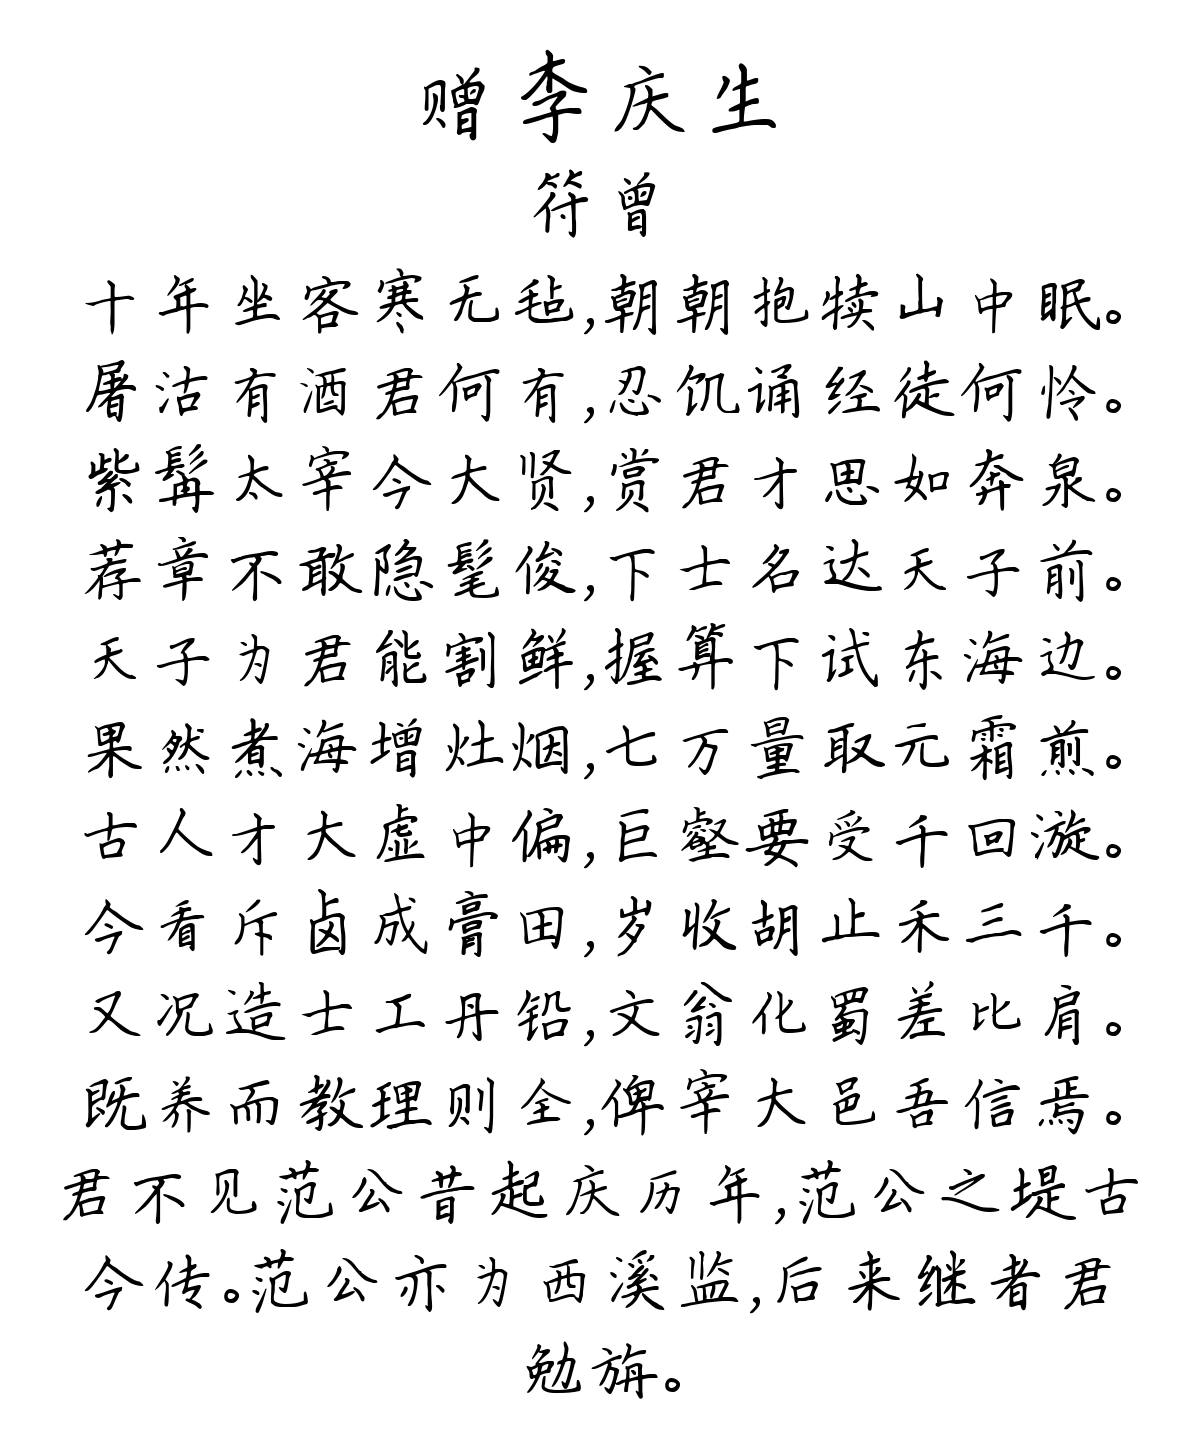 赠李庆生
符曾
十年坐客寒无毡,朝朝抱犊山中眠。
屠沽有酒君何有,忍饥诵经徒何怜。
紫髯太宰今大贤,赏君才思如奔泉。
荐章不敢隐髦俊,下士名达天子前。
天子为君能割鲜,握算下试东海边。
果然煮海增灶烟,七万量取元霜煎。
古人才大虚中偏,巨壑要受千回漩。
今看斥卤成膏田,岁收胡止禾三千。
又况造士工丹铅,文翁化蜀差比肩。
既养而教理则全,俾宰大邑吾信焉。
君不见范公昔起庆历年,范公之堤古
今传。范公亦为西溪监,后来继者君
勉旃。